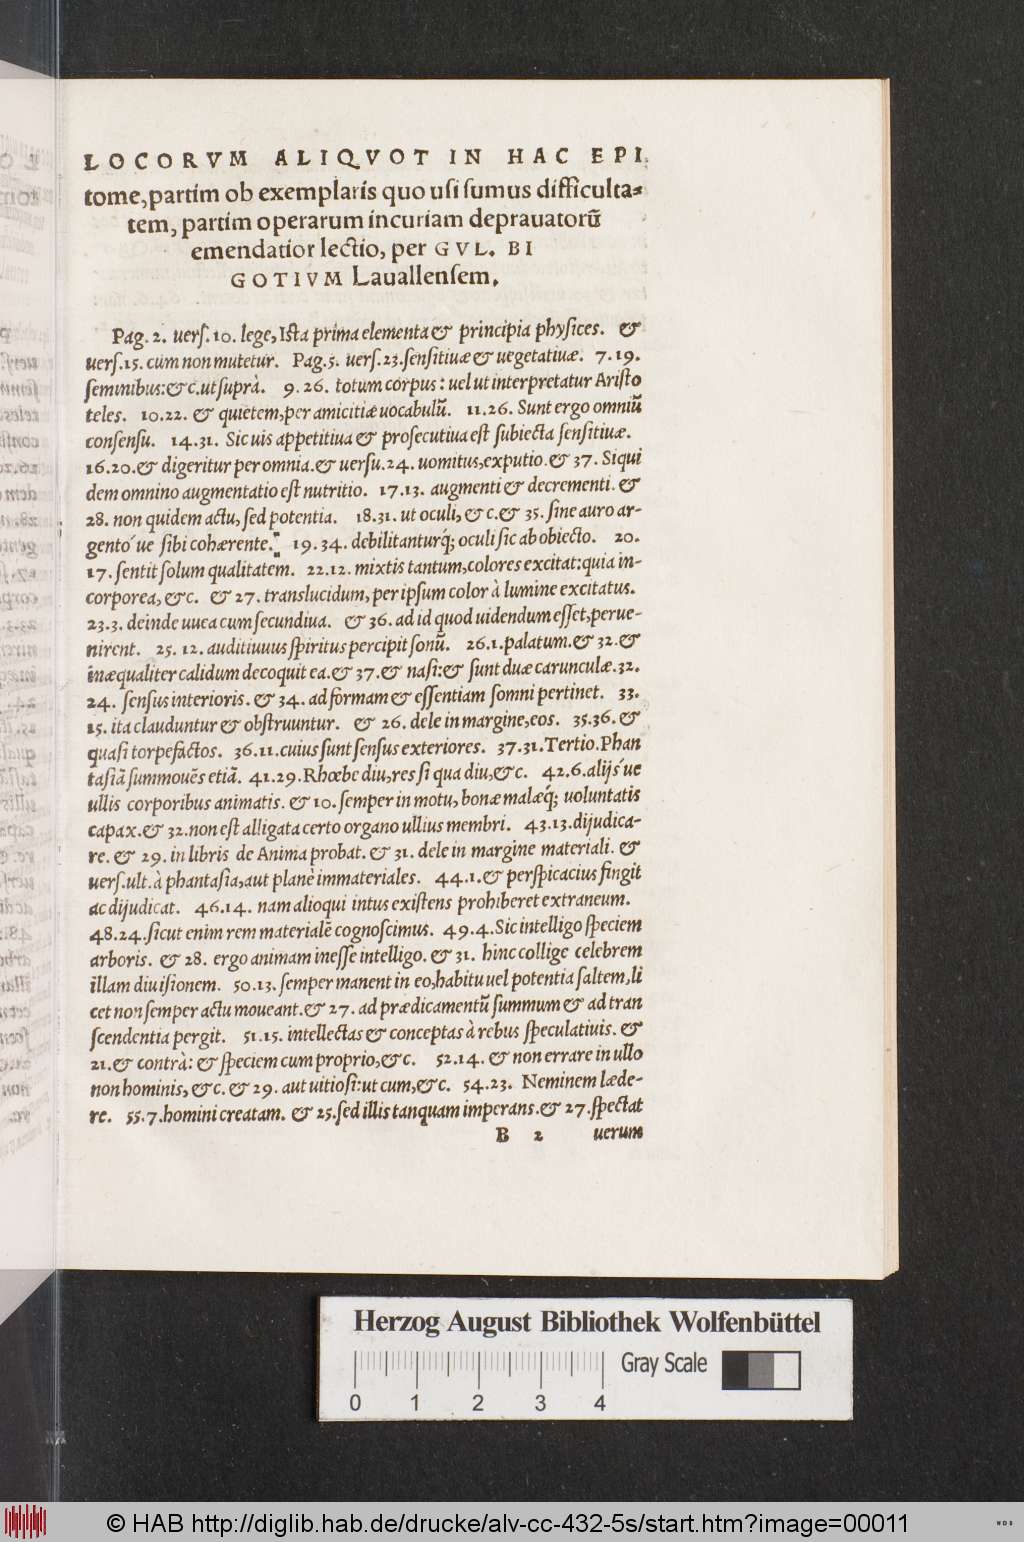 LOCORVM ALIQVOT IN HAC EPI
tome, partim ob exemplaris quo usi sumus difficulta-
tem, partim operarum incuriam deprauatorũ
emendatior lectio, per GVL. BI
GOTIVM Lauallensem.
Pag. 2. uers. 10. lege, Ista prima elementa & principia physices. &
uers. 15. cum non mutetur. Pag. 5. uers. 23. sensitiuæ & uegetatiuæ. 7. 19.
seminibus: &c. ut suprà. 9. 26. totum corpus: uel ut interpretatur Aristo
teles. 10. 22. & quietem, per amicitiæ uocabulũ. 11. 26. Sunt ergo omniũ
consensu. 14. 31. Sic uis appetitiua & prosecutiua est subiecta sensitiuæ.
16. 20. & digeritur per omnia. & uersu. 24. uomitus, exputio. & 37. Siqui
dem omnino augmentatio est nutritio. 17. 13. augmenti & decrementi. &
28. non quidem actu, sed potentia. 18. 31. ut oculi, &c. & 35. sine auro ar-
gentó ue sibi cohærente. 19. 34. debilitanturq́; oculi sic ab obiecto. 20.
17. sentit solum qualitatem. 22. 12. mixtis tantum, colores excitat: quia in-
corporea, &c. & 27. translucidum, per ipsum color à lumine excitatus.
23. 3. deinde uuea cum secundiua. & 36. ad id quod uidendum esset, perue-
nirent. 25. 12. auditiuuus spiritus percipit sonũ. 26. 1. palatum. & 32. &
inæqualiter calidum decoquit ea. & 37. & nasi: & sunt duæ carunculæ. 32.
24. sensus interioris. & 34. ad formam & essentiam somni pertinet. 33.
15. ita clauduntur & obstruuntur. & 26. dele in margine, eos. 35. 36. &
quasi torpefactos. 36. 11. cuius sunt sensus exteriores. 37. 31. Tertio. Phan
tasiã summouẽs etiã. 41. 29. Rhœbe diu, res si qua diu, &c. 42. 6. alijs ́ue
ullis corporibus animatis. & 10. semper in motu, bonæ malæq́; uoluntatis
capax. & 32. non est alligata certo organo ullius membri. 43. 13. dijudica-
re. & 29. in libris de Anima probat. & 31. dele in margine materiali. &
uers. ult. à phantasia, aut planè immateriales. 44. 1. & perspicacius fingit
ac dijudicat. 46. 14. nam alioqui intus existens prohiberet extraneum.
48. 24. sicut enim rem materialẽ cognoscimus. 49. 4. Sic intelligo speciem
arboris. & 28. ergo animam inesse intelligo. & 31. hinc collige celebrem
illam diuisionem. 50. 13. semper manent in eo, habitu uel potentia saltem, li
cet non semper actu moueant. & 27. ad prædicamentũ summum & ad tran
scendentia pergit. 51. 15. intellectas & conceptas à rebus speculatiuis. &
21. & contrà: & speciem cum proprio, &c. 52. 14. & non errare in ullo
non hominis, &c. & 29. aut uitiosi: ut cum, &c. 54. 23. Neminem læde-
re. 55. 7. homini creatam. & 25. sed illis tanquam imperans. & 27. spectat
B 2 uerum
Herzog August Bibliothek Wolfenbüttel
Gray Scale
0 1 2 3 4
© HAB http://diglib.hab.de/drucke/alv-cc-432-5s/start.htm?image=00011